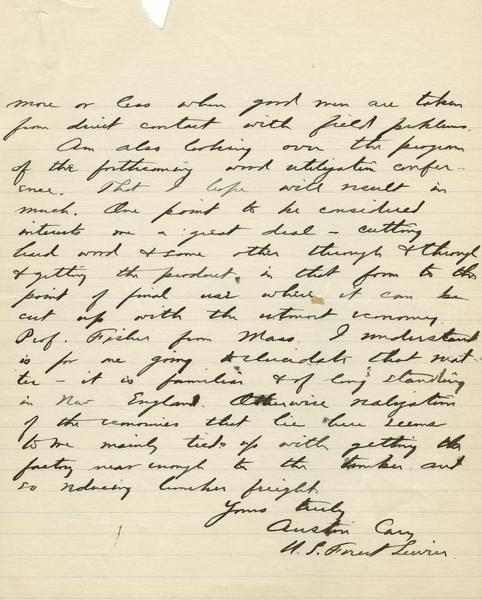 more or less when good men are taken
from direct contact with field problems.
Am also looking over the program
of the forthcoming wood utilization confer-
ence. That I hope will result in
much. One point to be considered
interests me a great deal - cutting
hard wood & some other through & through
& getting the product in that form to the
point of final use where it can be
cut up with the utmost economy.
Prof. Fisher from Mass. I understand
is for one going to elucidate that mat-
ter - it is familiar & of long standing
in New England. Otherwise realization
of the economies that lie here seems
to me mainly tied up with getting the
factory near enough to the timber and
so reducing lumber freight.
Yours truly
Austin Cary
U. S. Forest Service